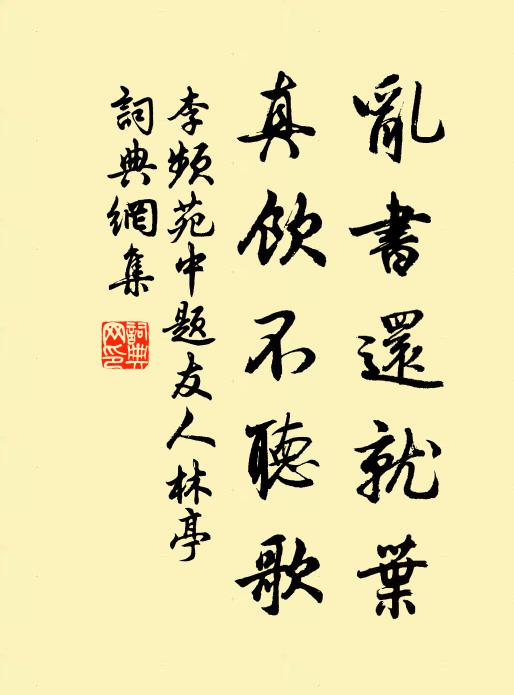 亂書還就葉
真飲不聽歌
李頻苑中題友人林亭
詞典網集
詞典網印